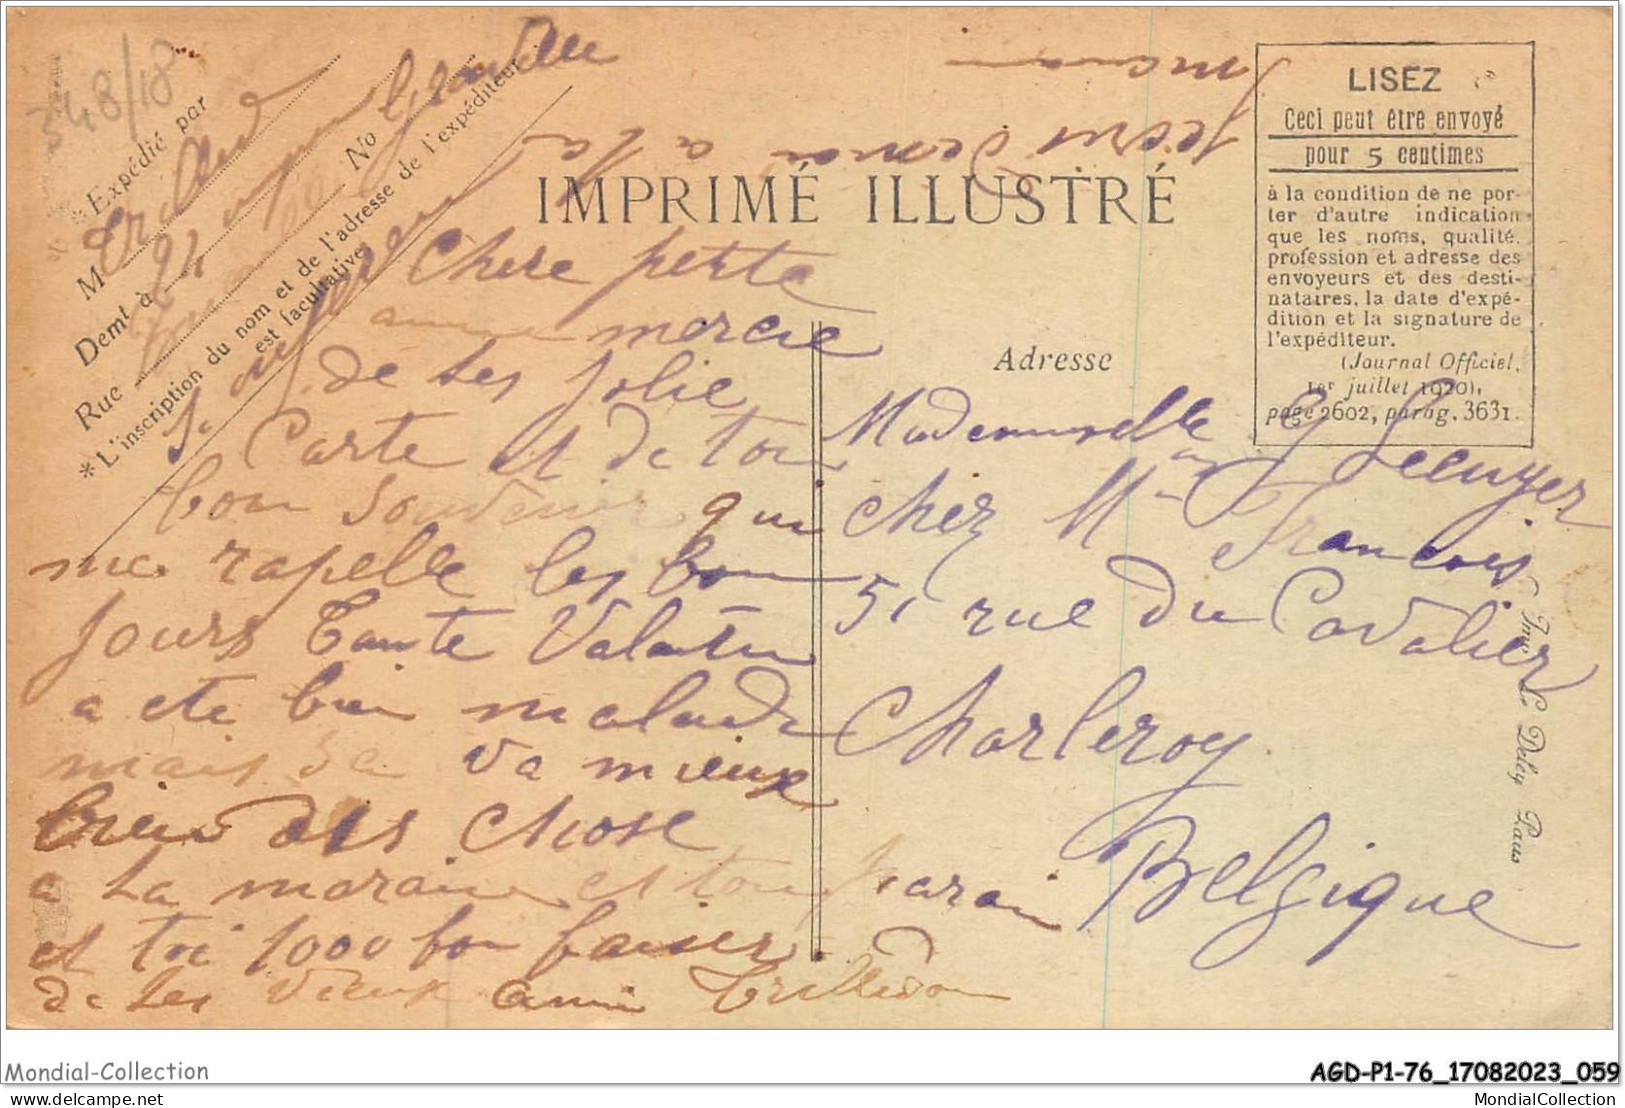 348/18
* Expédié par
M
Demt à
Rue
No
* L'inscription du nom et de l'adresse de l'expéditeur
est facultative
IMPRIMÉ ILLUSTRÉ
LISEZ
Ceci peut être envoyé
pour 5 centimes
à la condition de ne por-
ter d'autre indication
que les noms, qualité,
profession et adresse des
envoyeurs et des desti-
nataires, la date d'expé-
dition et la signature de
l'expéditeur.
(Journal Officiel,
1er juillet 1920),
page 2602, parag. 3631.
Chere petite
amie mercie
de tes jolie
Carte et de ton
bon souvenir qui
me rapelle les bon
jours Tante
a ete bien malade
mais sa va mieux
bien des chose
a ta maraine et ton parain
et toi 1000 bon baiser
de tes vieux ami
Adresse
Mademoiselle G Lecuyer
chez Mme François
51 rue du Cavalier
Charleroy
Belgique
Imp. Le Deley Paris
Mondial-Collection
AGD-P1-76_17082023_059
delcampe.net
MondialCollection